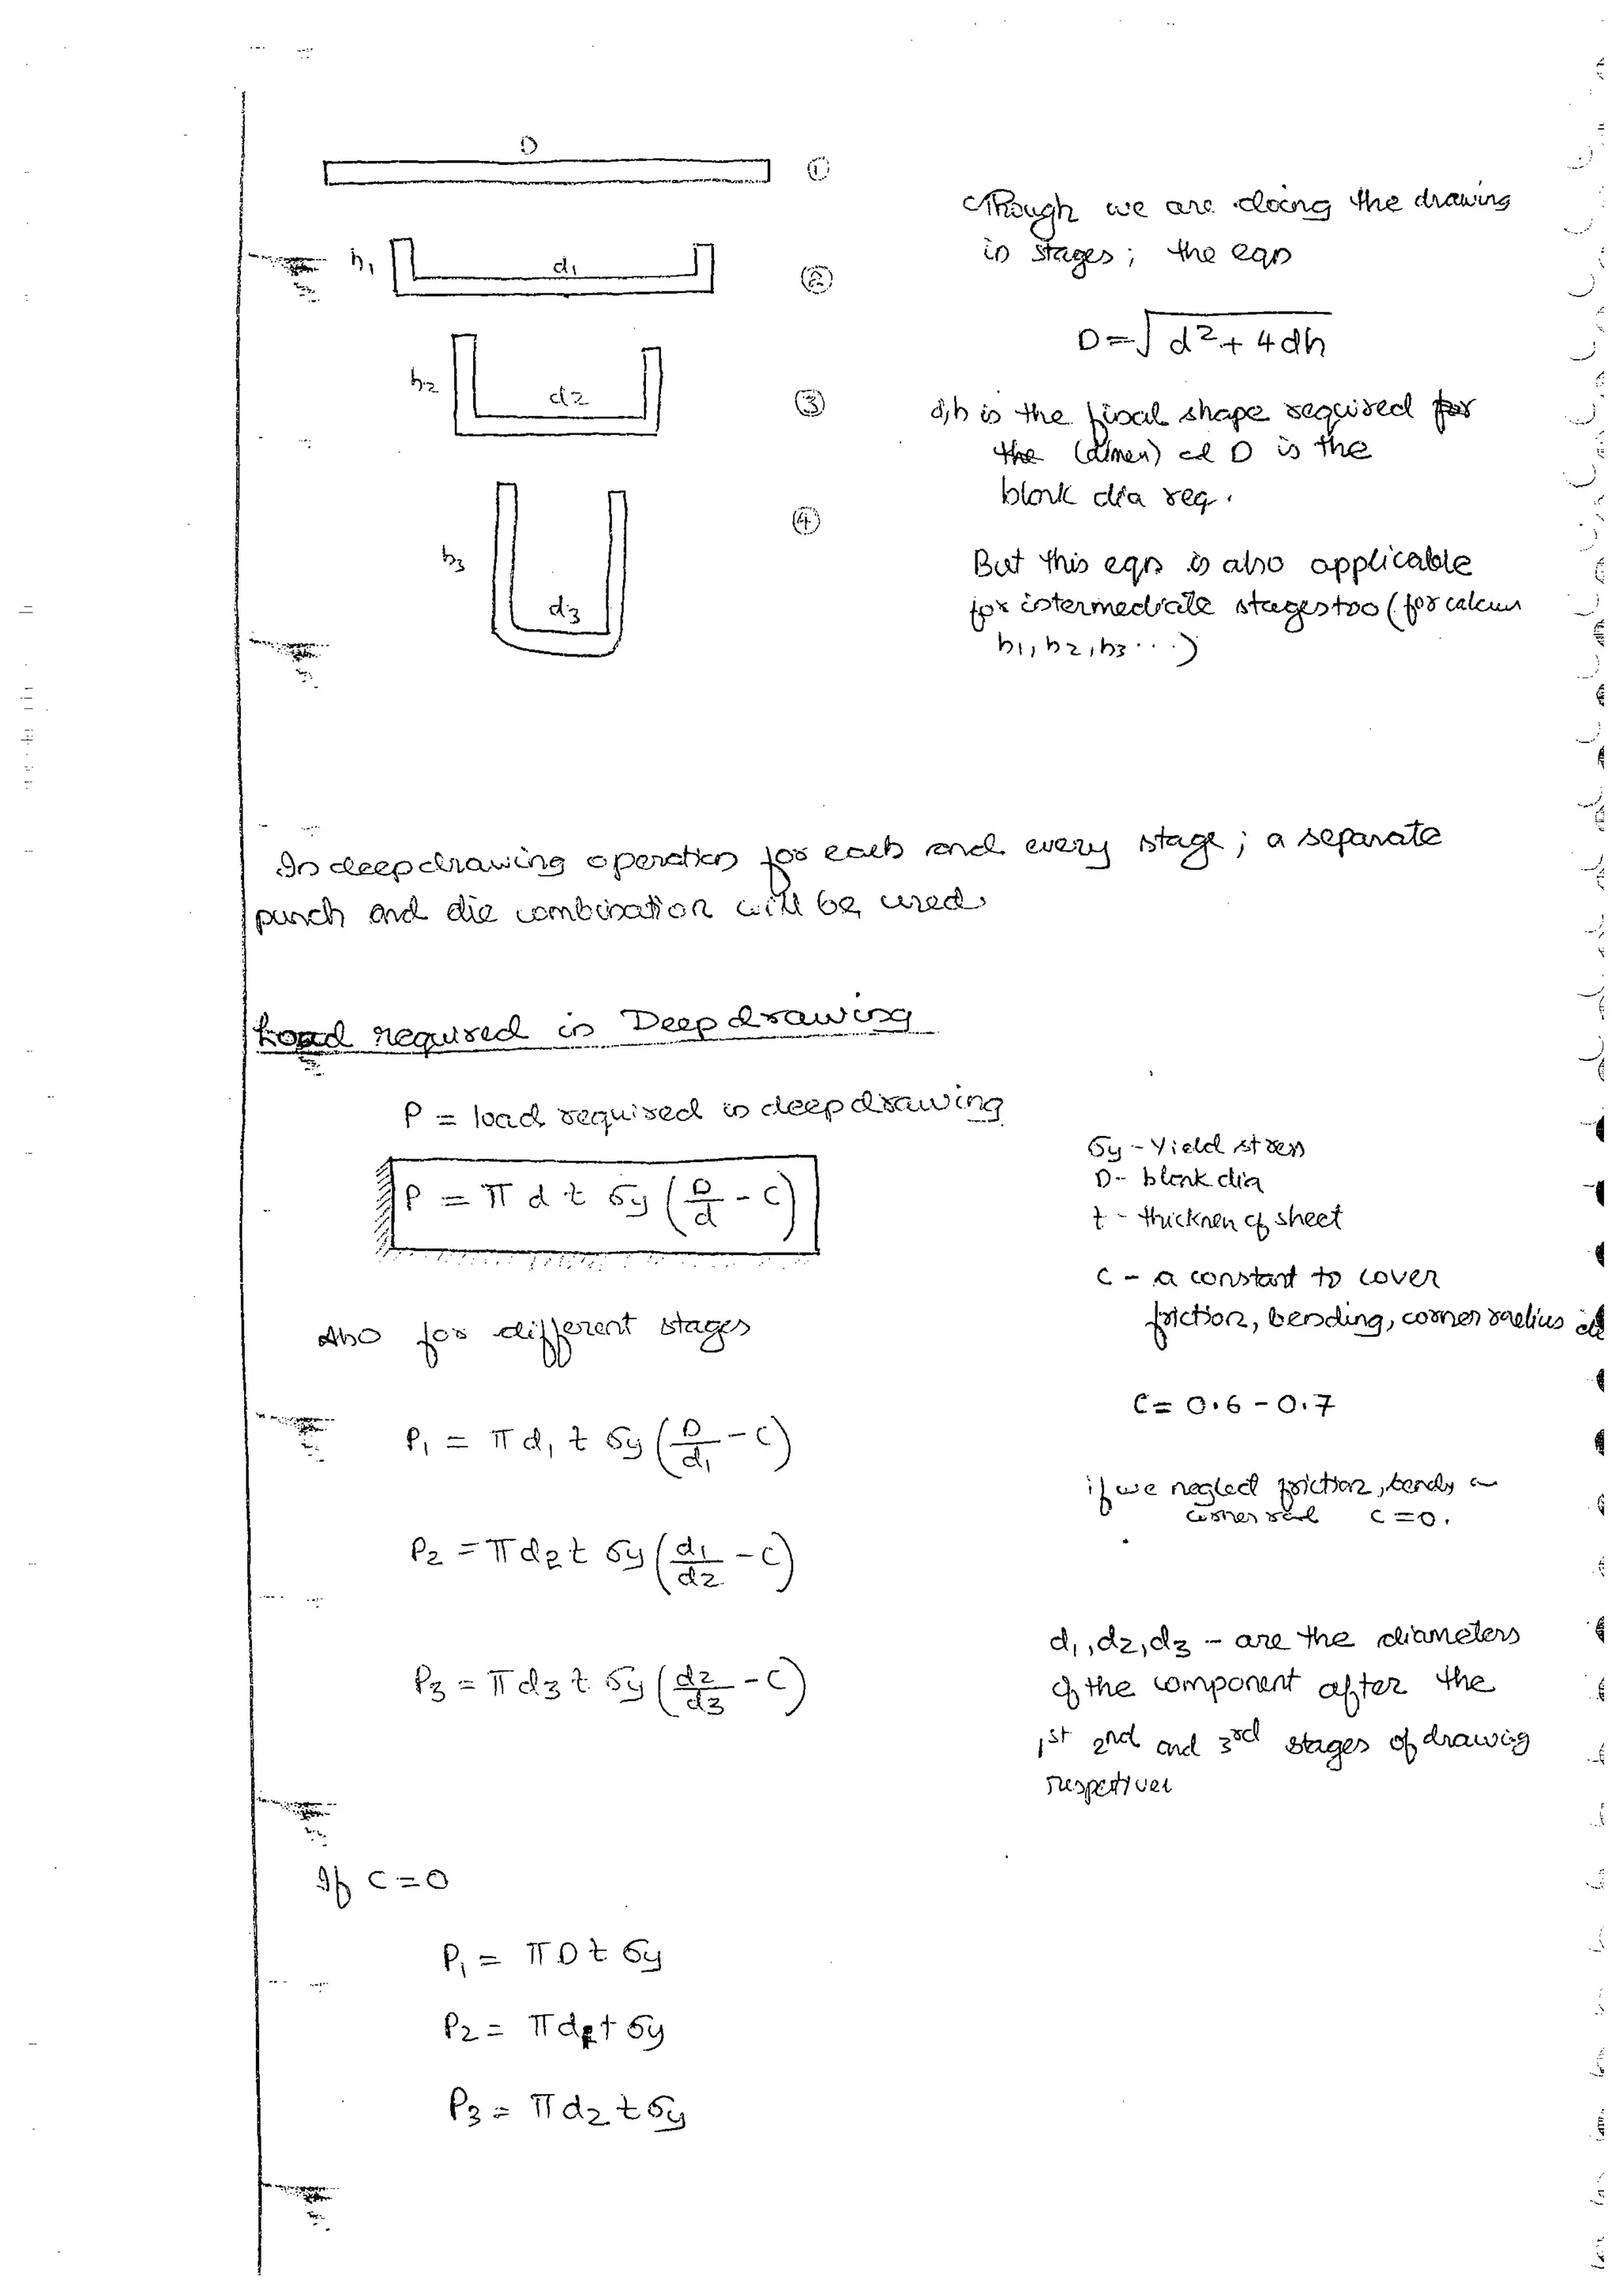 D
①
h₁ d₁ ②
h₂ d2 ③
h₃ d3 ④
Though we are doing the drawing
in stages; the eqn
D = √(d² + 4dh)
d,h is the final shape required for
the (dimen) D is the
blank dia req.
But this eqn is also applicable
for intermediate stages too (for calcun
h₁, h2, h3 ...)
In deepdrawing operation for each and every stage; a separate
punch and die combination will be used.
Load required in Deep drawing
P = load required in deep drawing
P = π d t σy (D/d - C)
σy - Yield stress
D - blank dia
t - thickness of sheet
C - a constant to cover
friction, bending, corner radius
C = 0.6 - 0.7
if we neglect friction, bendg
corner rad C = 0.
Also for different stages
P₁ = π d₁ t σy (D/d₁ - C)
P2 = π d2 t σy (d₁/d2 - C)
P3 = π d3 t σy (d2/d3 - C)
d₁, d2, d3 - are the diameters
of the component after the
1st 2nd and 3rd stages of drawing
If C = 0
P₁ = π D t σy
P2 = π d₁ t σy
P3 = π d2 t σy